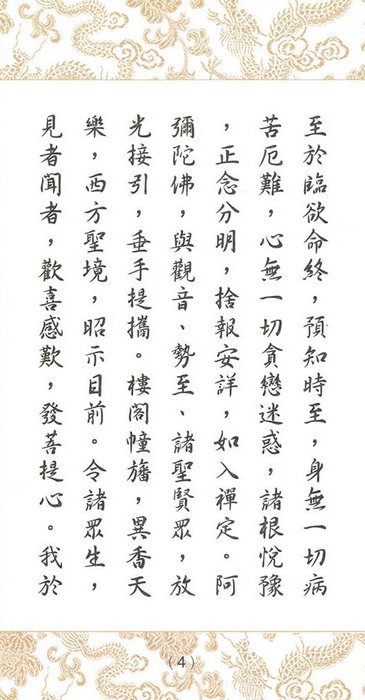 至於臨欲命終，預知時至，身無一切病
苦厄難，心無一切貪戀迷惑，諸根悅豫
，正念分明，捨報安詳，如入禪定。阿
彌陀佛，與觀音、勢至、諸聖賢眾，放
光接引，垂手提攜。樓閣幢旛，異香天
樂，西方聖境，昭示目前。令諸眾生，
見者聞者，歡喜感歎，發菩提心。我於
（4）